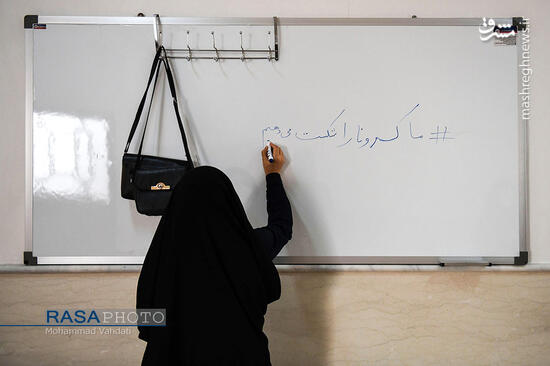 # ما کرونا را شکست می دهیم
مشرق
mashreghnews.ir
RASAPHOTO
Mohammad Vahdati